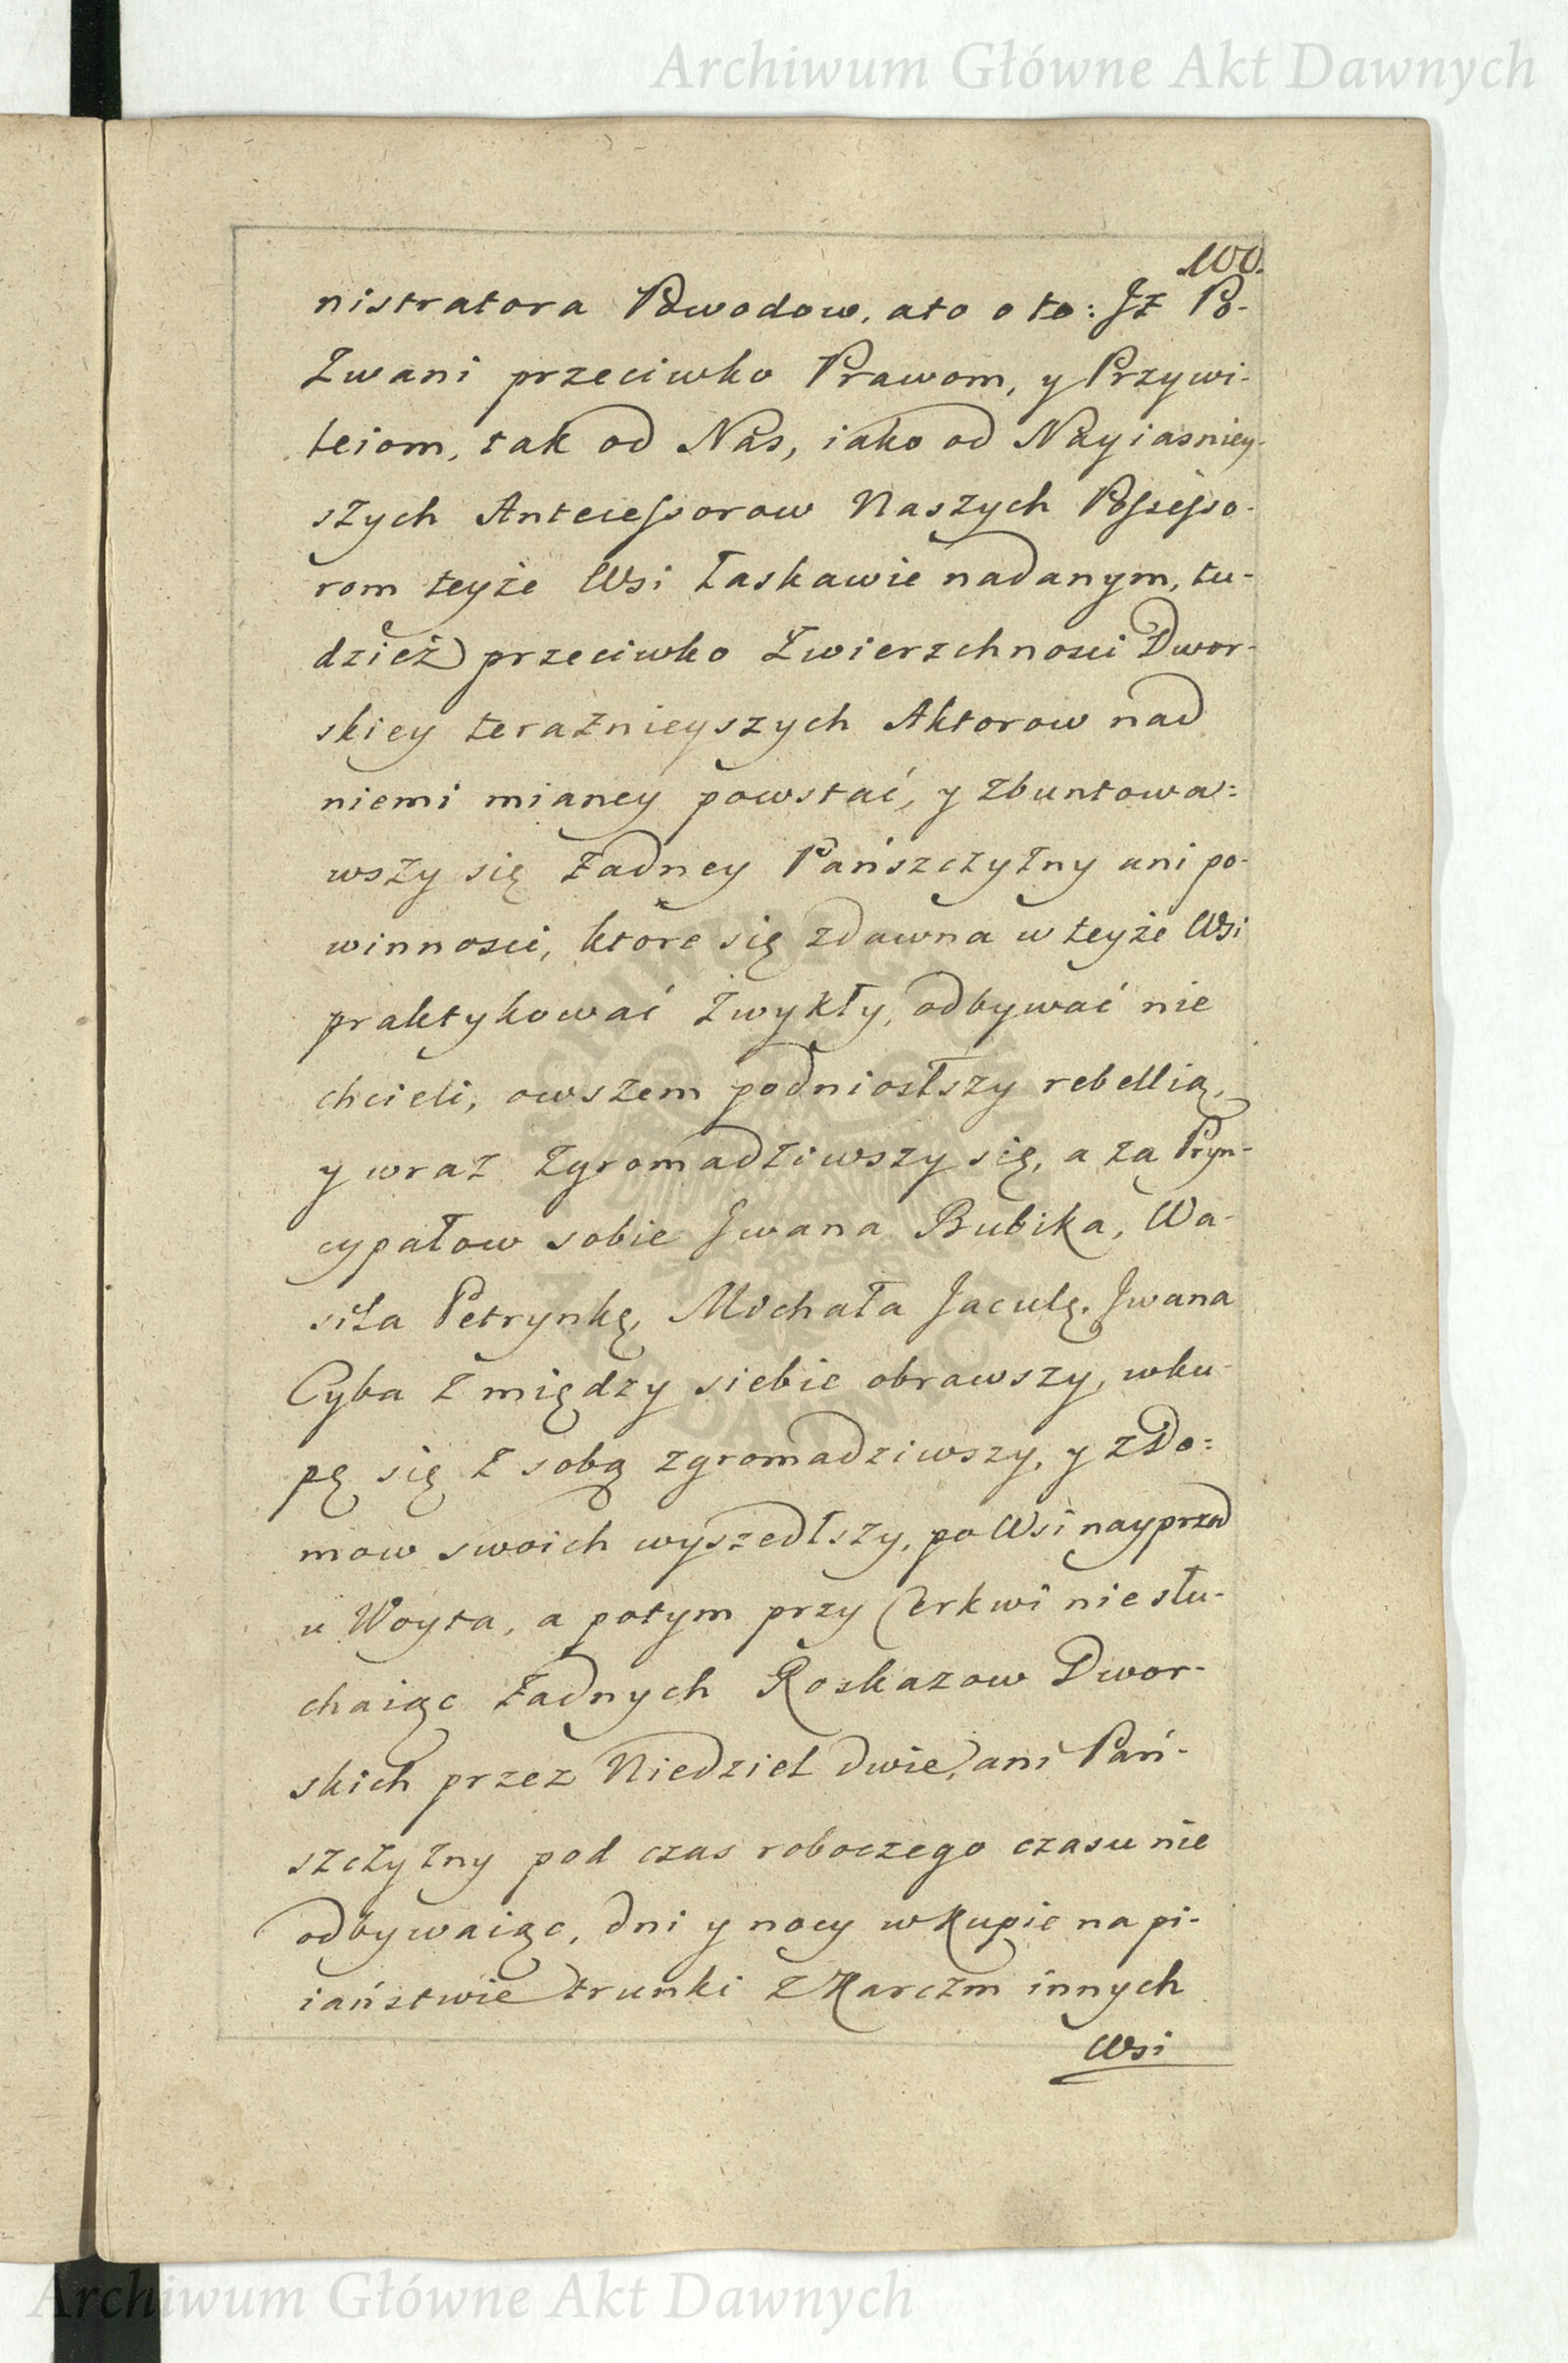 Archiwum Główne Akt Dawnych
100.
nistratora Powodow, ato o to: Jż Po-
zwani przeciwko Prawom, y Przywi-
leiom, tak od Nas, iako od Nayiasniey-
szych Antecessorow Naszych Possesso-
rom teyże Wsi łaskawie nadanym, tu-
dzież przeciwko Zwierzchnosci Dwor-
skiey teraźnieyszych Aktorow nad
niemi mianey powstać, y zbuntowa=
wszy się żadney Pańszczyzny ani po-
winnosci, ktore się zdawna w teyże Wsi
praktykować zwykły, odbywać nie
chcieli, owszem podniosłszy rebellią,
y wraz zgromadziwszy się, a za Pryn-
cypałow sobie Jwana Bubika, Wa-
siła Petrynkę, Michała Jaculę, Jwana
Cyba z między siebie obrawszy, wku-
pę się z sobą zgromadziwszy, y z Do=
mow swoich wyszedłszy, po Wsi nayprzod
u Woyta, a potym przy Cerkwi nie słu-
chaiąc żadnych Roskazow Dwor-
skich przez Niedziel dwie, ani Pań-
szczyzny pod czas roboczego czasu nie
odbywaiąc, dni y nocy w Kupie na pi-
iaństwie trunki z Karczm innych
Wsi
ARCHIWUM GŁÓWNE
AKT DAWNYCH
Archiwum Główne Akt Dawnych